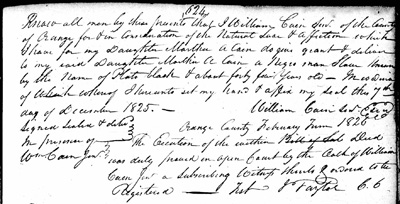 624
Know all men by these presents that I William Cain Senr. of the County
of Orange for & in Consideration of the Natural Love & affection which
I have for my Daughter Martha A Cain do give grant & deliver
to my said Daughter Martha A Cain a Negro man Slave known
by the Name of Plato black & about forty four years old — In Witness
of which whereof I hereunto set my hand & affix my seal this 9th
day of December 1825 — William Cain Senr.
Signed Sealed & deliv
In presence of
Wm Cain Junr
Orange County February Term 1826
The Execution of the within Bill of Sale Deed
was duly proved in open Court by the Oath of William
Cain Jnr a subscribing Witness thereto & ordered to be
Registered — Test J Taylor C.C